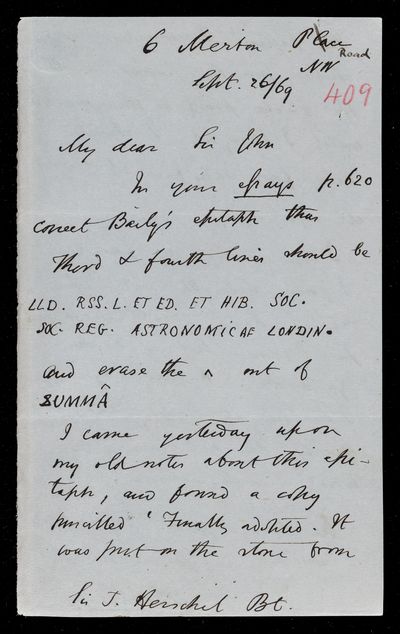 6 Merton Place Road
NW
Sept. 26/69
409
My dear Sir John
In your essays p. 620
correct Baily's epitaph thus
Third & fourth lines should be
LLD. RSS. L. ET ED. ET HIB. SOC.
SOC. REG. ASTRONOMICAE LONDIN.
and erase the ^ out of
SUMMÂ
I came yesterday upon
my old notes about this epi-
taph, and found a copy
pencilled 'Finally adopted. It
was put on the stone from
Sir J. Herschel Bt.